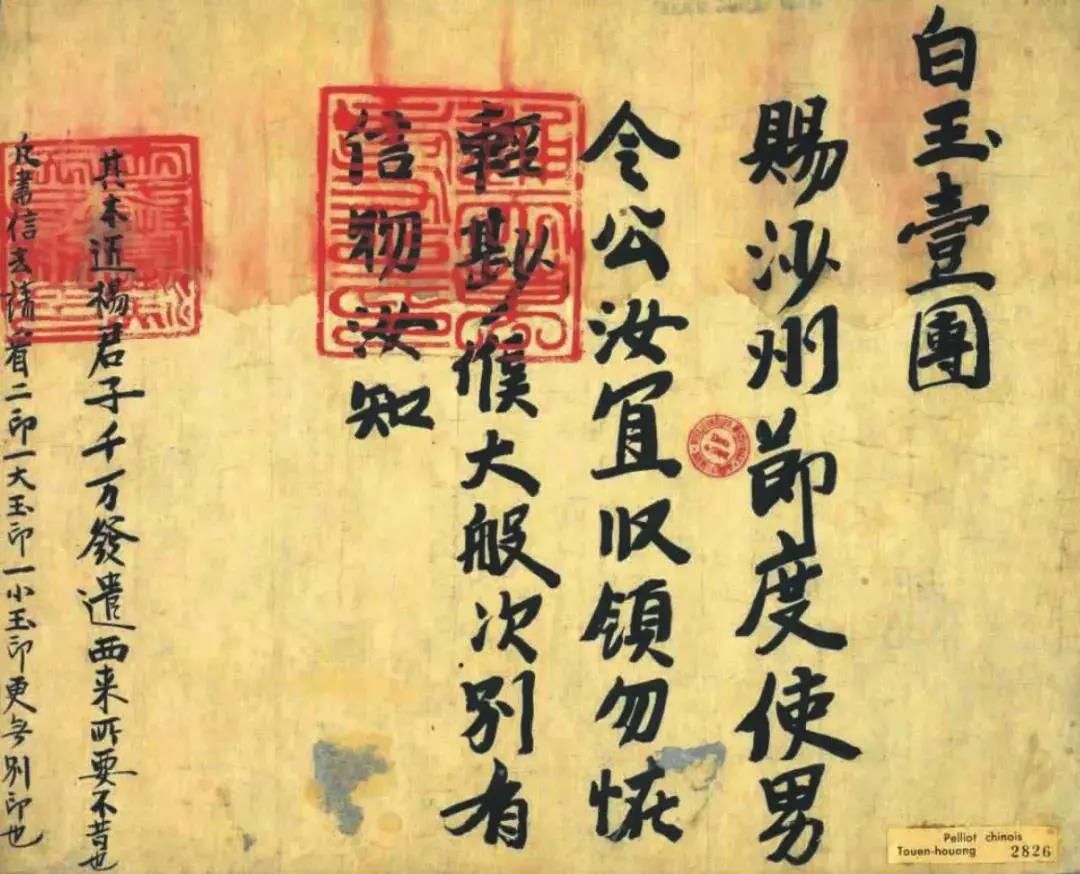 白玉壹團
賜沙州節度使男
令公汝宜收領勿恠
輕尠候大般次別有
信物汝知
其木匠楊君子千万發遣西来所要不昔也
凡書信去請看二印一大玉印一小玉印更無別印也
Pelliot chinois
Touen-houang 2826